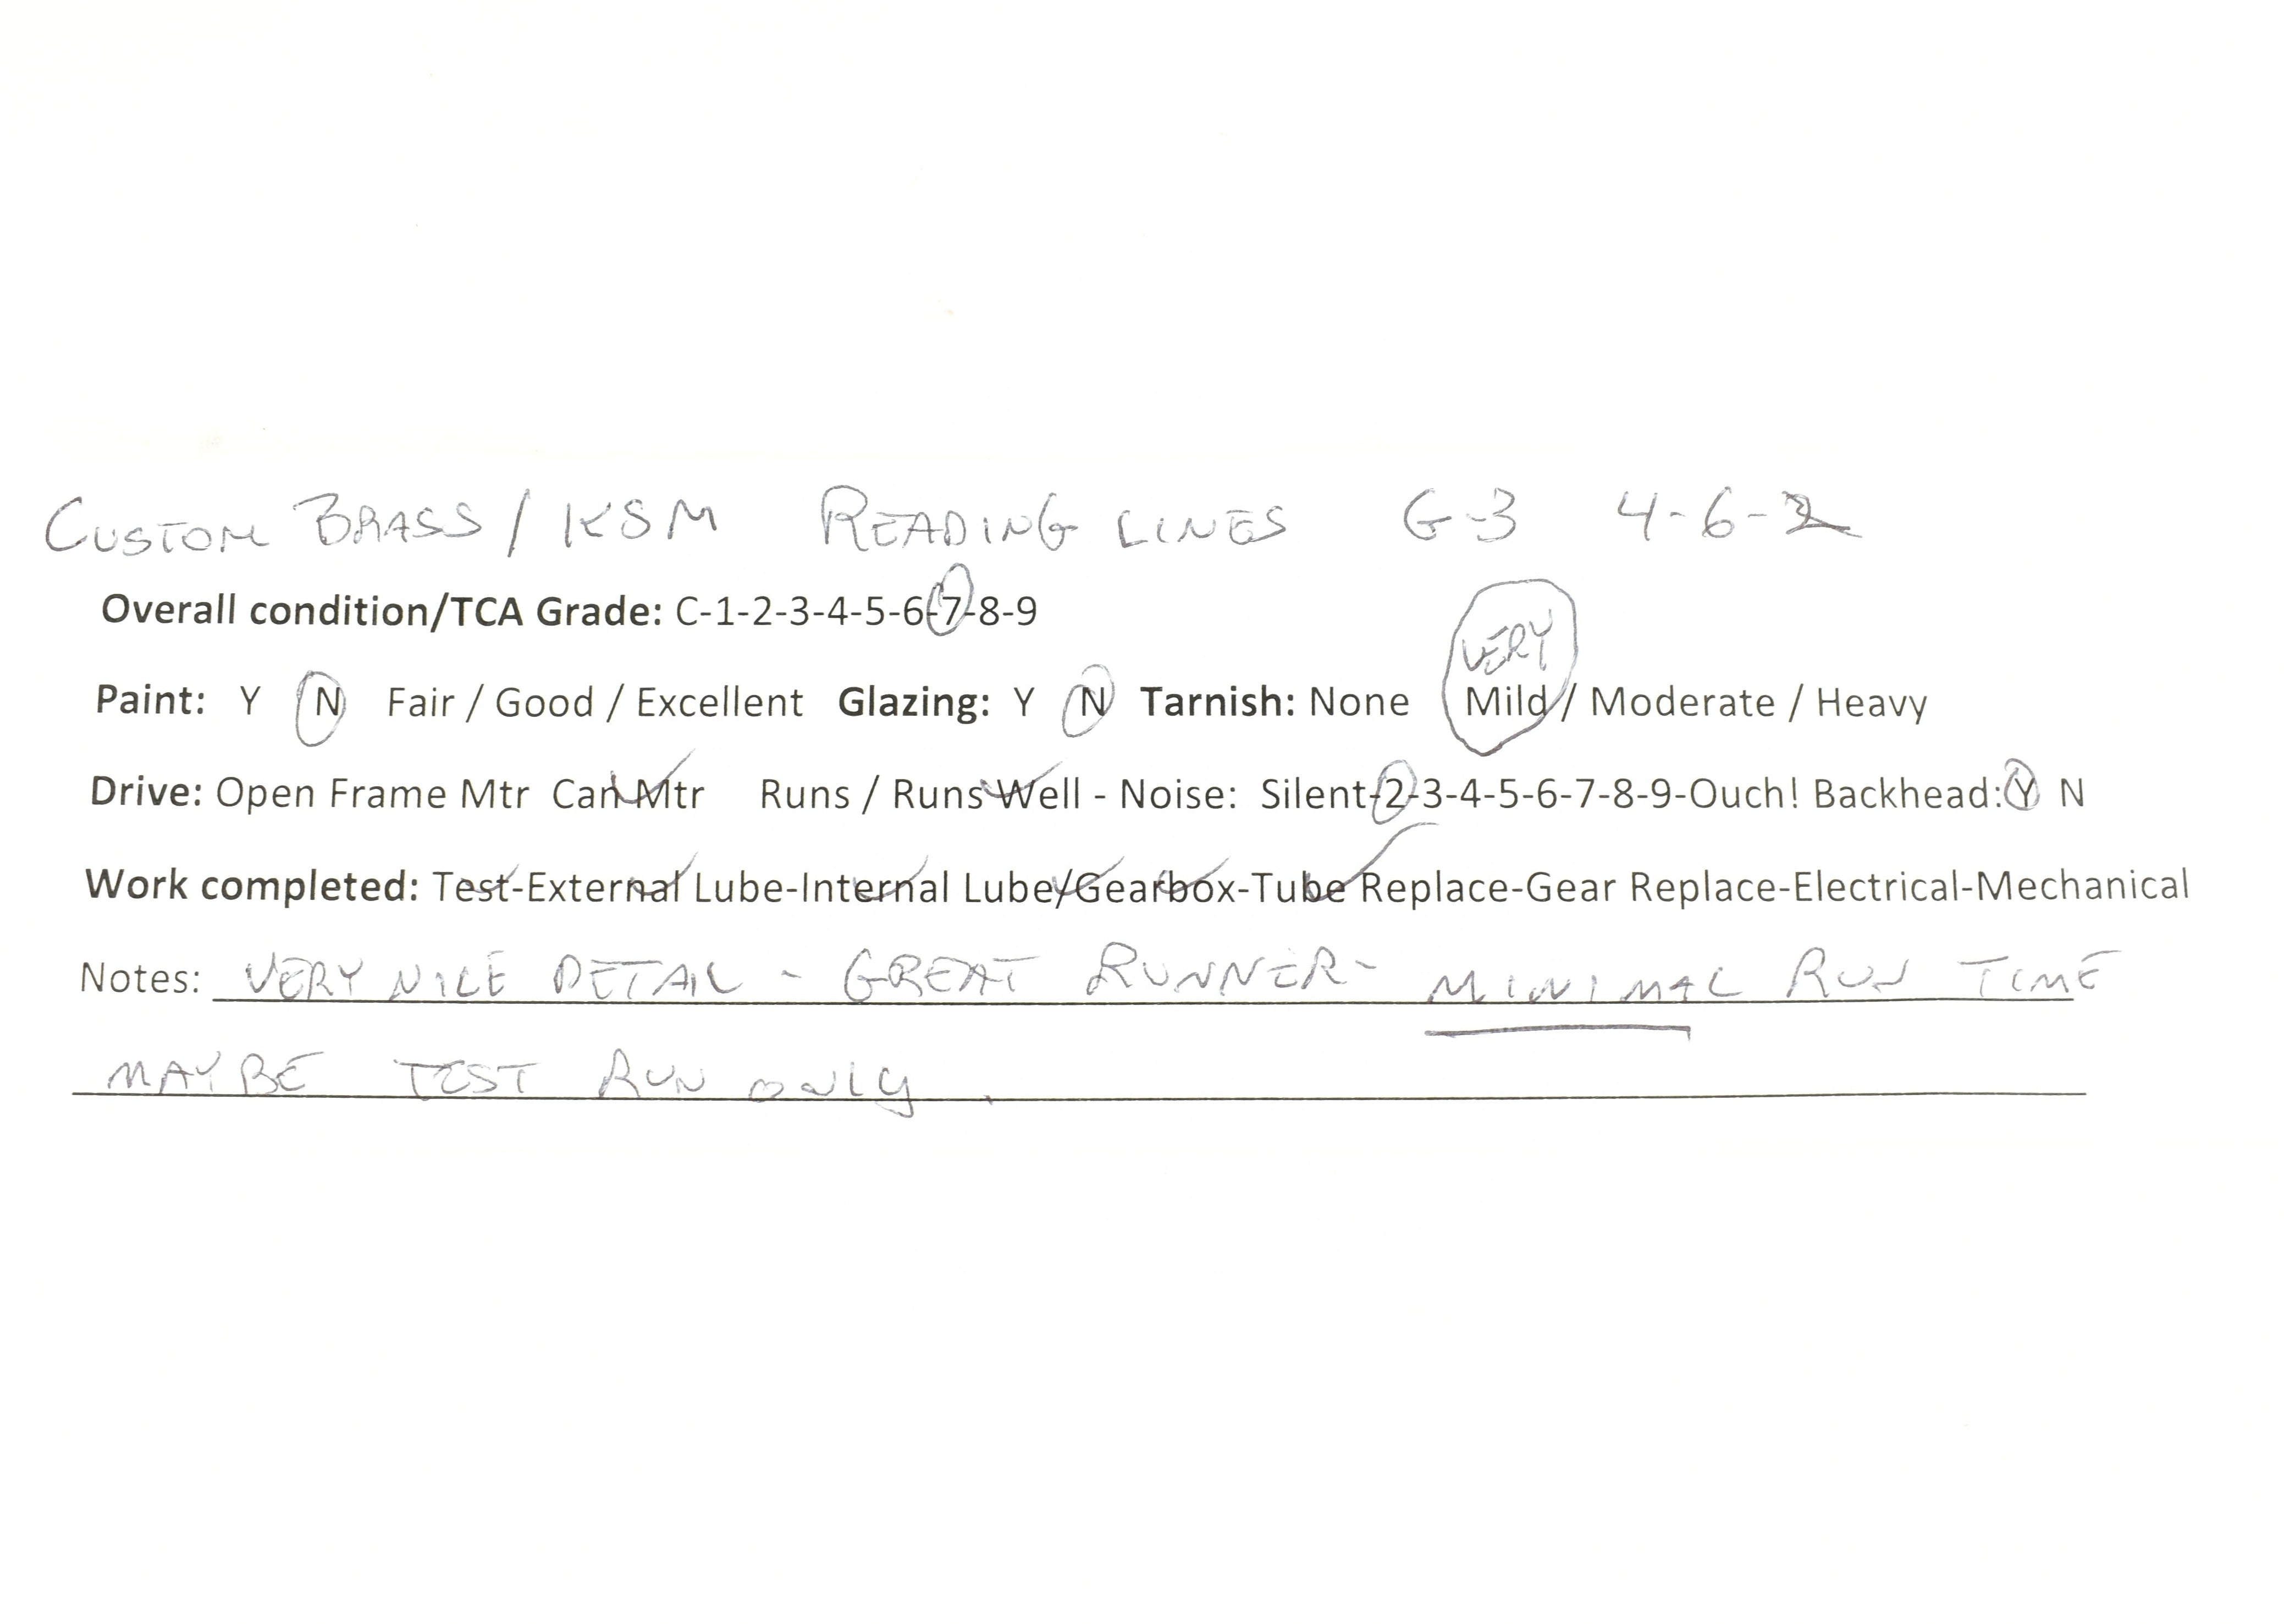 CUSTOM BRASS / KSM READING LINES G-3 4-6-2
Overall condition/TCA Grade: C-1-2-3-4-5-6-7-8-9
VERY
Paint: Y N Fair / Good / Excellent Glazing: Y N Tarnish: None Mild / Moderate / Heavy
Drive: Open Frame Mtr Can Mtr Runs / Runs Well - Noise: Silent-2-3-4-5-6-7-8-9-Ouch! Backhead: Y N
Work completed: Test-External Lube-Internal Lube/Gearbox-Tube Replace-Gear Replace-Electrical-Mechanical
Notes: VERY NICE DETAIL - GREAT RUNNER - MINIMAL RUN TIME
MAYBE TEST RUN ONLY